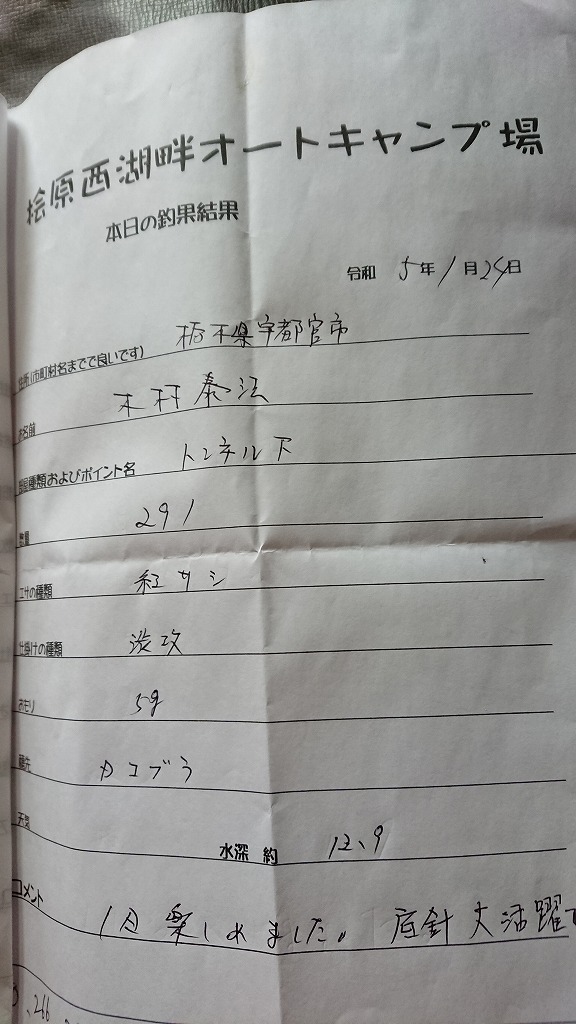 桧原西湖畔オートキャンプ場
本日の釣果結果
令和 5年 1月 24日
住所(市町村名までで良いです) 栃木県宇都宮市
お名前 木村泰法
種類およびポイント名 トンネル下
数量 291
エサの種類 紅サシ
仕掛けの種類 渋攻
おもり 5g
穂先 カコブラ
天気 水深 約 12.9
コメント 1日楽しめました。 底針大活躍で
266